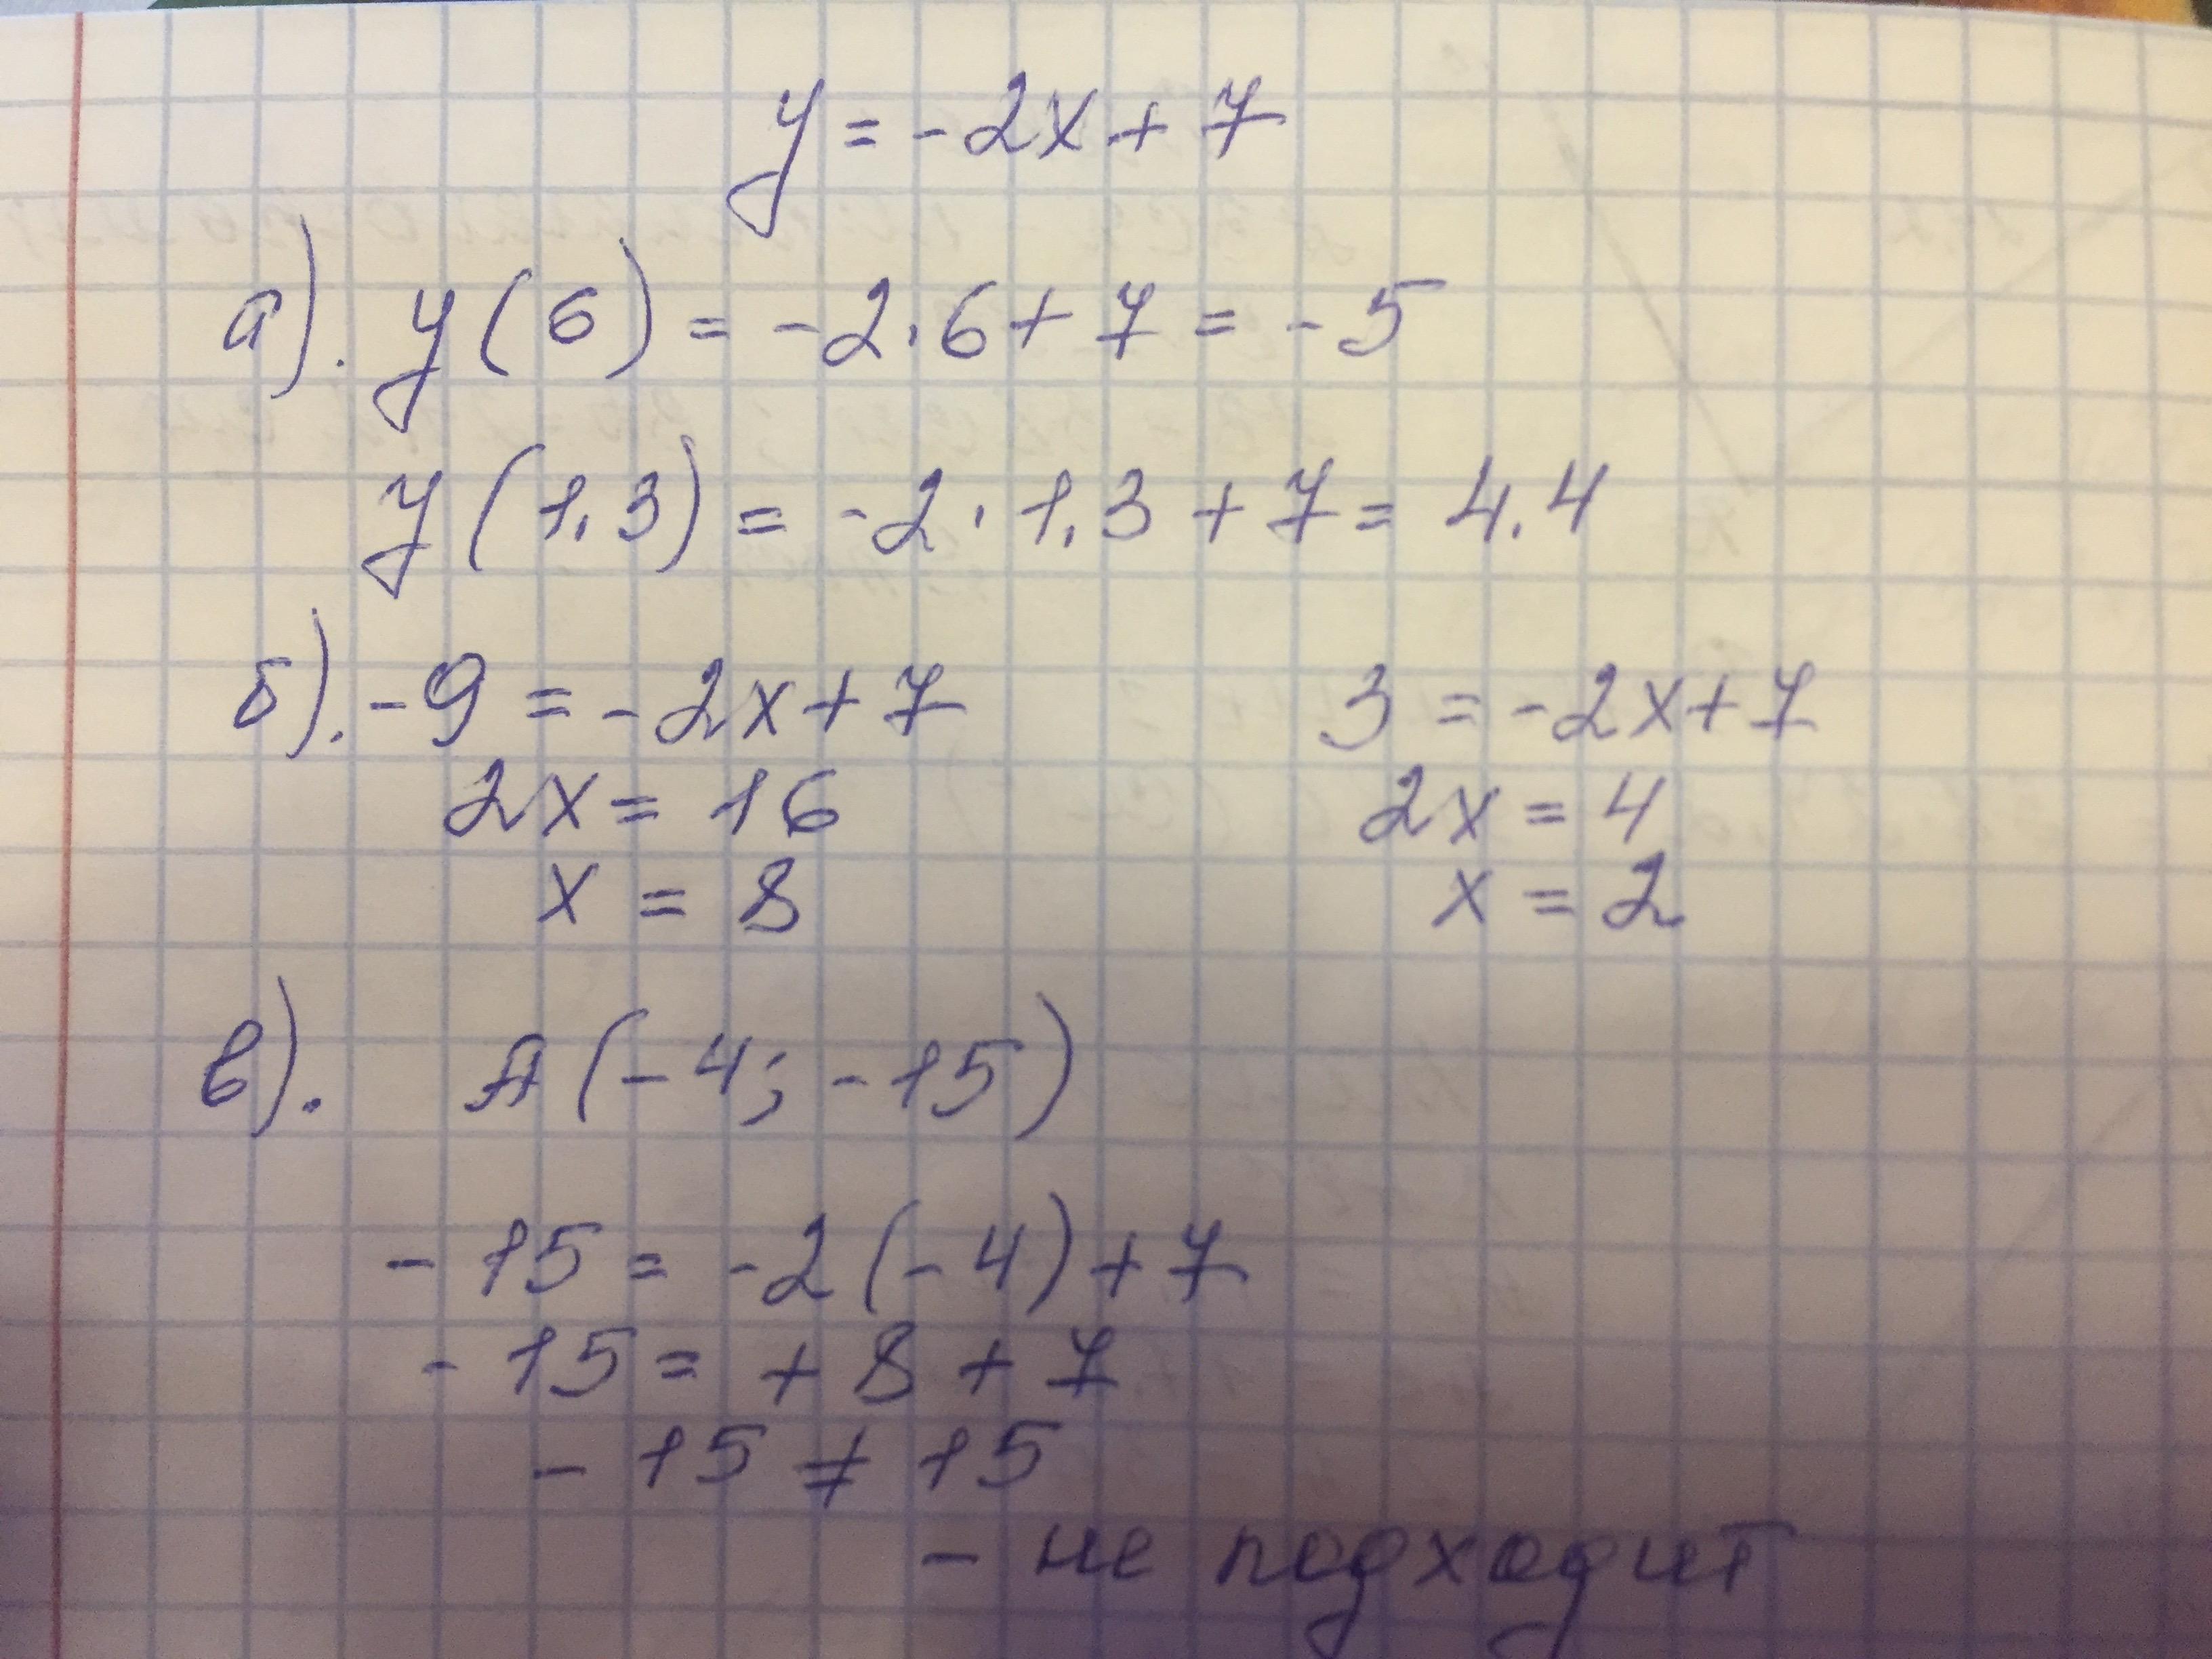 y = -2x + 7
а). y(6) = -2·6 + 7 = -5
y(1,3) = -2·1,3 + 7 = 4.4
б). -9 = -2x + 7 3 = -2x + 7
2x = 16 2x = 4
x = 8 x = 2
в). A(-4; -15)
-15 = -2(-4) + 7
-15 = +8 + 7
-15 ≠ 15
- не подходит